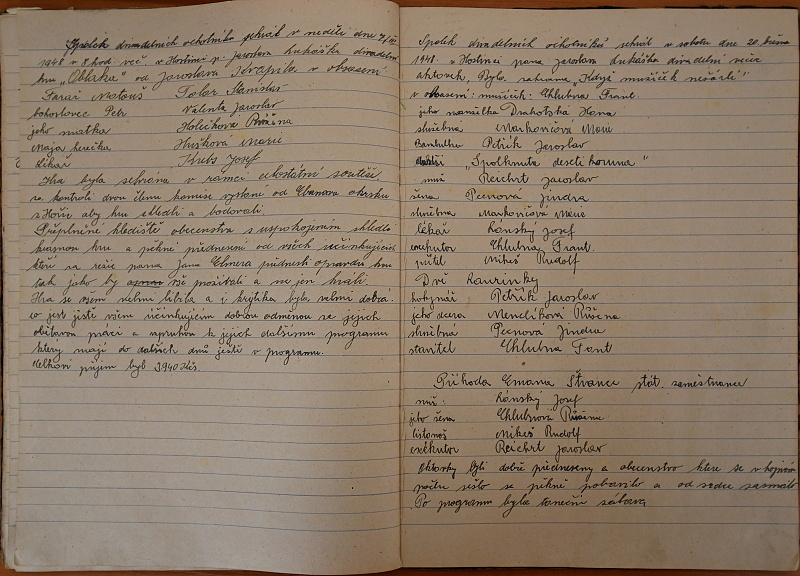 Spolek divadelních ochotníků sehrál v neděli dne
1948 v 8 hod. več. v Hostinci p. Jaroslava Lukáška divadelní
hru „Oblaka" od Jaroslava Kvapila v obsazení
Farář Matouš Tolar Stanislav
bohoslovec Petr Valenta Jaroslav
jeho matka Holečkova Růžena
Maja herečka Hušková Marie
Lékař Krebs Josef
Hra byla sehrána v rámci celostátní soutěže
za kontroli dvou členů komise vyslané od okrsku
z Hořic aby hru shlédli a bodovali.
Přeplněné hlediště obecenstva s uspokojením shlédlo
krásnou hru a pěkné přednesení od všech účinkujících
kteří za režie pana Jana Elmera přednesli opravdu hru
tak jako by vše prožívali a ne jen hráli.
Hra se všem velmi líbila a i kritika byla velmi dobrá.
co jest jistě všem účinkujícím dobrou odměnou za jejich
obětavou práci a vzpruhou k jejich dalšímu programu
který mají do dalších dnů ještě v programu.
Celkový příjem byl 3940 Kčs.
Spolek divadelních ochotníků sehrál v sobotu dne 20. března
1948. v Hostinci pana Jaroslava Lukáška divadelní večer
aktovek, Byla sehrana „Když mužíček nešárlí"
v obsazení: mužíček: Chlubna Frant.
jeho manželka Drahotská Hana
služebná Markovičová Marie
Bambulka Petřík Jaroslav
další „Spolknuta desetikoruna"
muž Reichrt Jaroslav
žena Pecnová Jindra
služebná Markovičová Marie
lékař Lánský Josef
exekutor Chlubna Frant.
přítel Mikeš Rudolf
Dvě Laurinky
hokynář Petřík Jaroslav
jeho dcera Menclíková Růžena
služebná Pecnová Jindra
stavitel Chlubna Fant
Příhoda Emana Štrance stát. zaměstnance
muž: Lánský Josef
jeho žena Chlubnová Růžena
listonoš Mikeš Rudolf
exekutor Reichrt Jaroslav
Aktovky byli dobře předneseny a obecenstvo ktere se v hojném
počtu sešlo se pěkně pobavilo a od srdce zasmálo
Po programu byla taneční zábava,